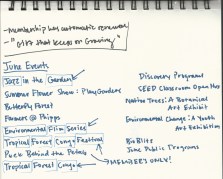 - Membership has automatic renewal
- "Gift that keeps on Growing"
June Events
Jazz in the Gardens
Summer Flower Show: Play Gardens
Butterfly Forest
Farmers @ Phipps
Environmental Film Series
Tropical Forest Congo Festival
Puck Behind the Petals
Tropical Forest Congo
MEMBERS ONLY!
Discovery Programs
SEED Classroom Open House
Native Trees: A Botanical
Art Exhibit
Environmental Change: A Youth
Art Exhibition
BioBlitz
June Public Programs